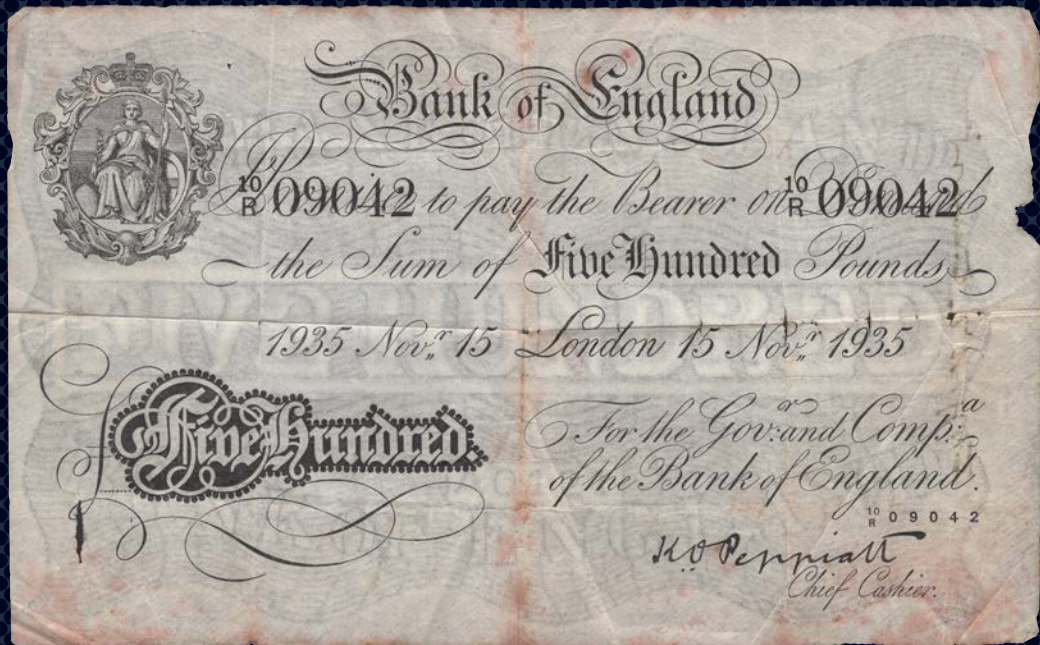 Bank of England
10/R 09042 to pay the Bearer on 10/R 09042
the Sum of Five Hundred Pounds
1935 Nov.r 15 London 15 Nov.r 1935
£ Five Hundred.
For the Gov.r and Comp.a
of the Bank of England.
10/R 09042
K O Peppiatt
Chief Cashier.